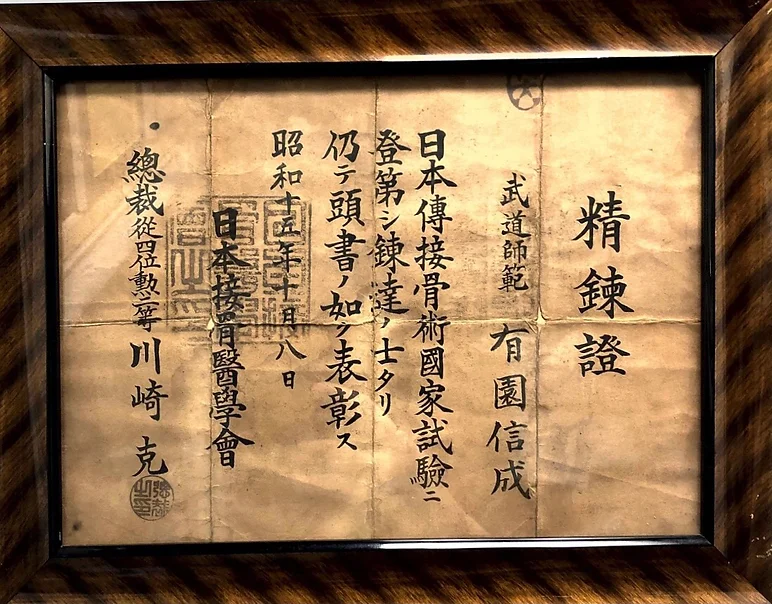 精錬證
武道師範 有園信成
日本傳接骨術國家試驗ニ
登第シ錬達ノ士タリ
仍テ頭書ノ如ク表彰ス
昭和十五年十月八日
日本接骨醫學會
總裁從四位勲二等川崎克